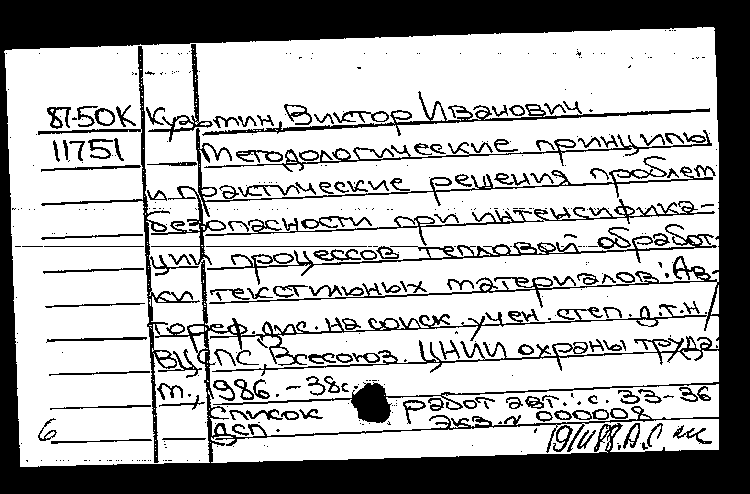 87-50К Кузьмин, Виктор Иванович.
11751 Методологические принципы
и практические решения проблем
безопасности при интенсифика-
ции процессов тепловой обработ-
ки текстильных материалов: Ав-
тореф. дис. на соиск. учен. степ. д.т.н/
ВЦСПС, Всесоюз. ЦНИИ охраны труда.
М., 1986. - 38с.
Список работ авт.: с. 33-36
6 ДСП. Экз. N 000008.